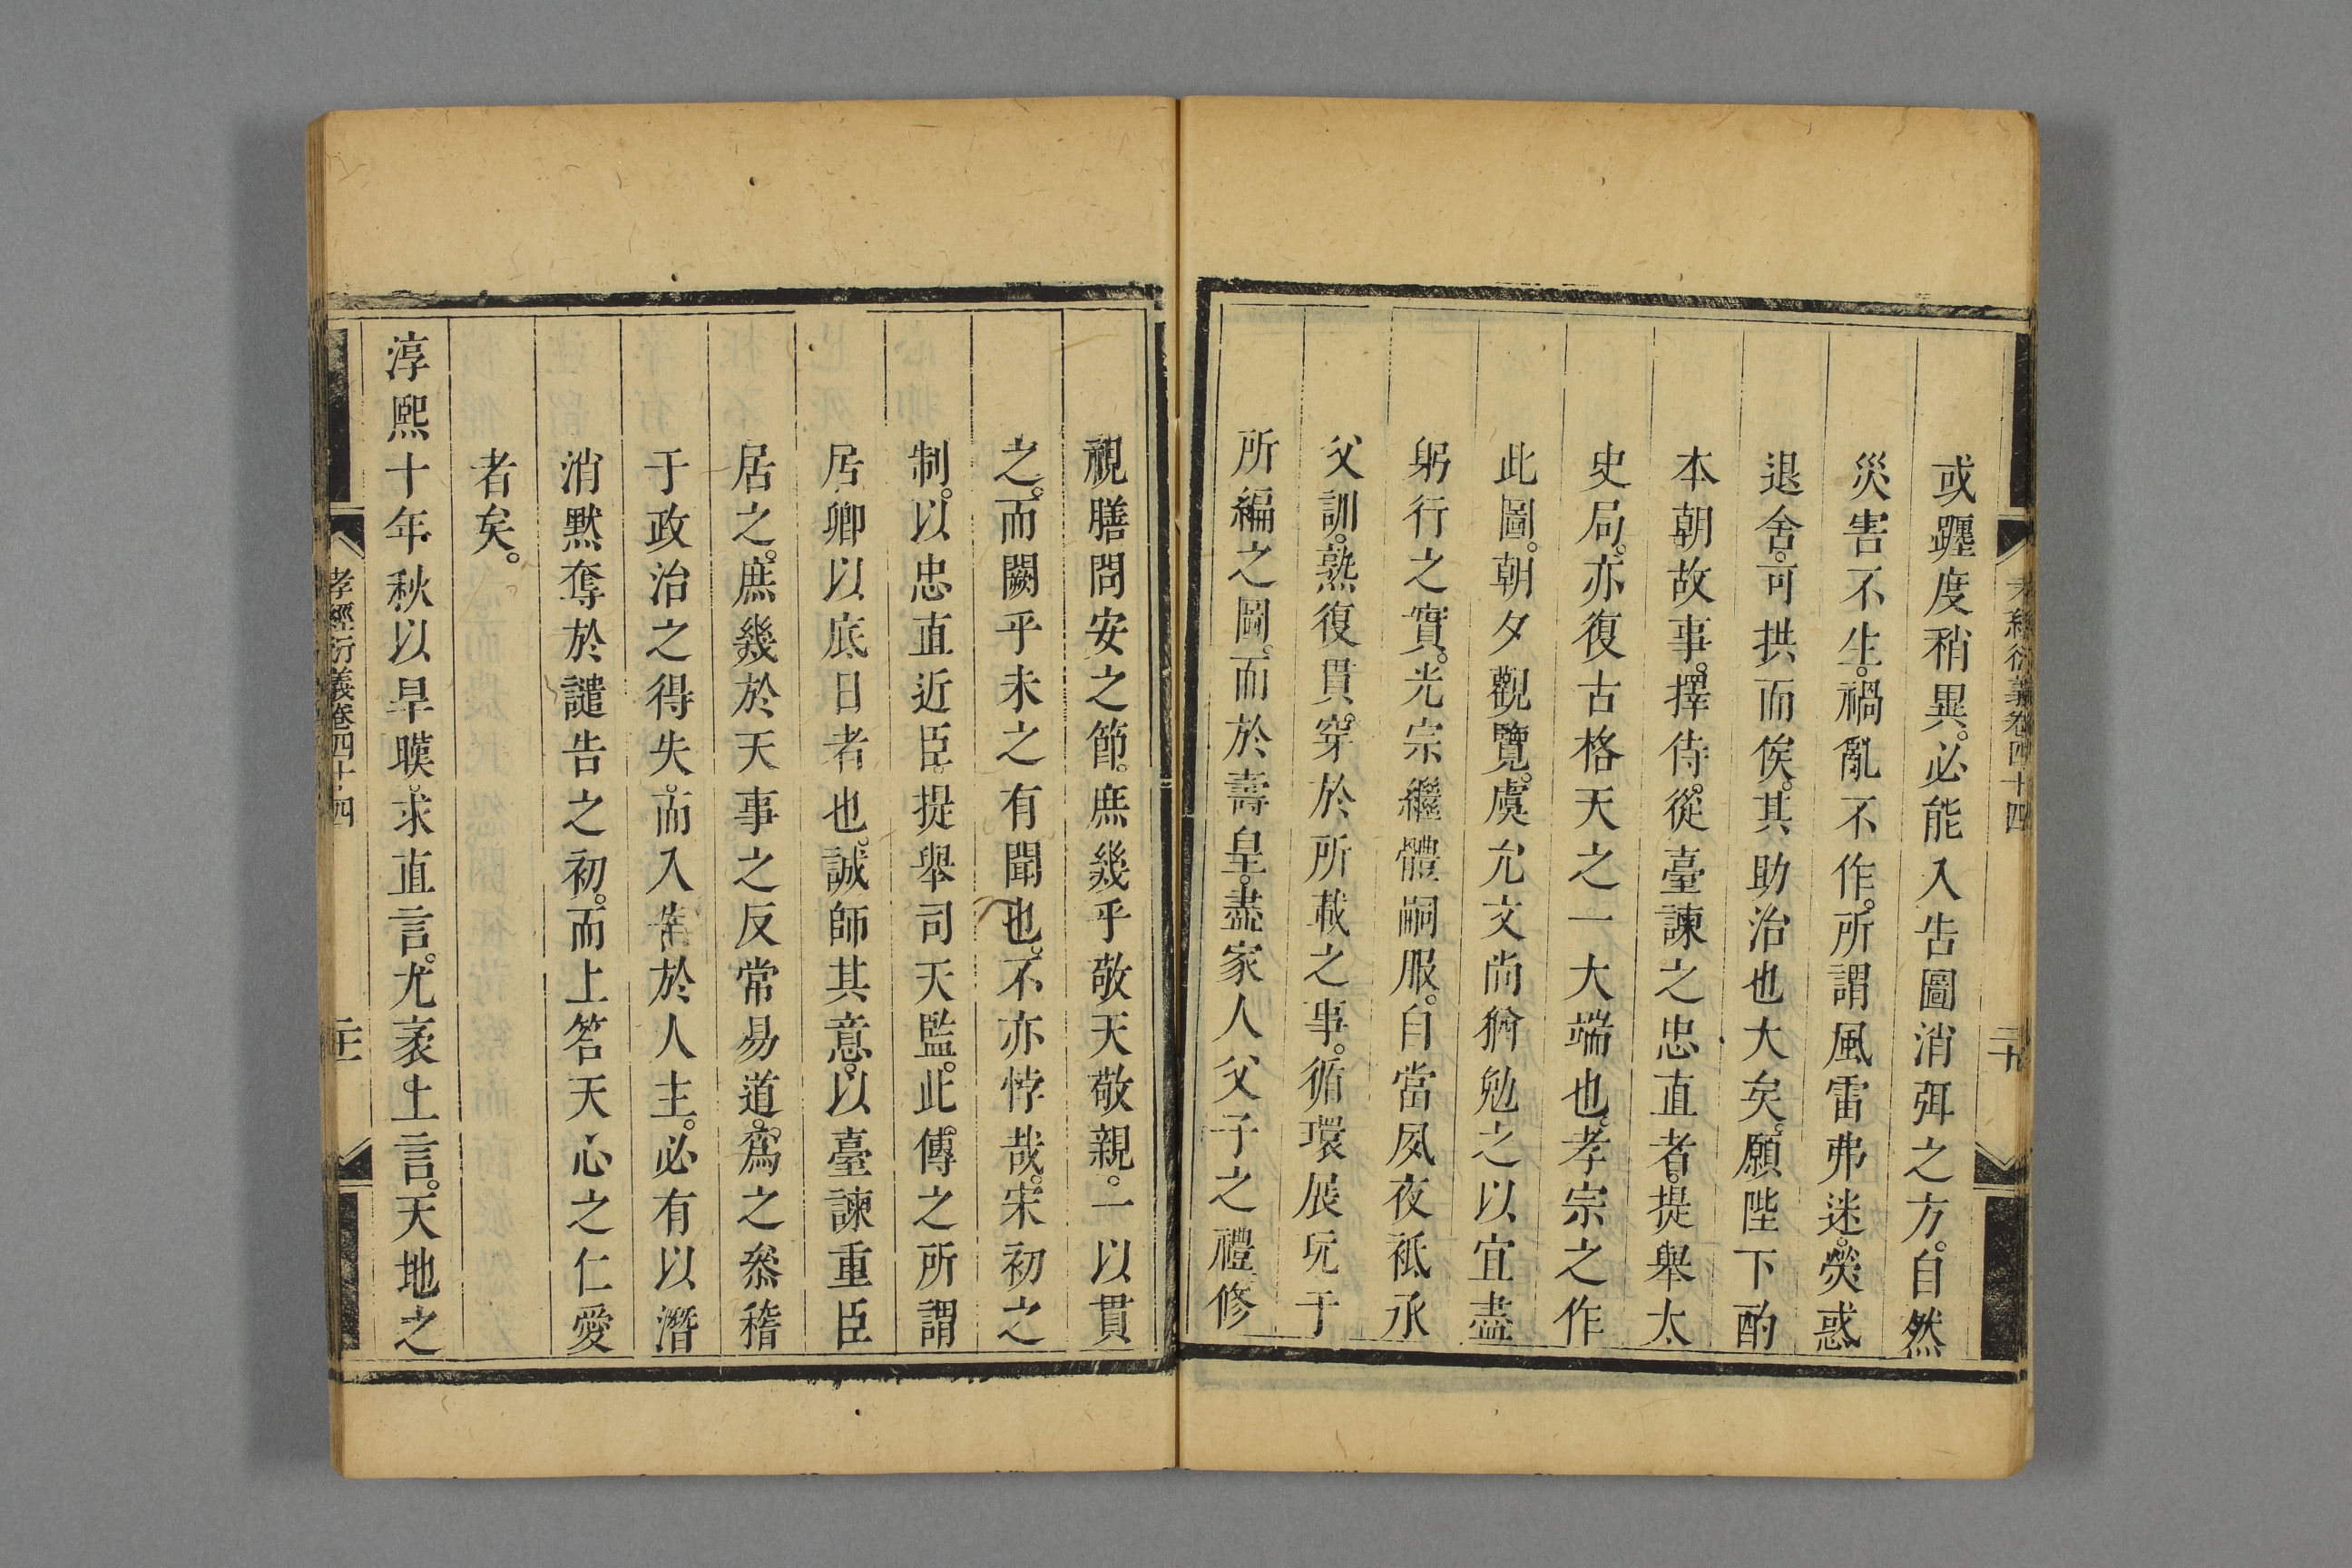 孝經衍義卷四十四
或躔度稍異。必能入告圖消弭之方。自然
災害不生。禍亂不作。所謂風雷弗迷。熒惑
退舍。可拱而俟。其助治也大矣。願陛下酌
本朝故事。擇侍從臺諫之忠直者。提舉太
史局。亦復古格天之一大端也。孝宗之作
此圖。朝夕觀覽。虞允文尚猶勉之以宜盡
躬行之實。光宗繼體嗣服。自當夙夜祗承
父訓。熟復貫穿於所載之事。循環展玩于
所編之圖。而於壽皇。盡家人父子之禮。修
視膳問安之節。庶幾乎敬天敬親。一以貫
之。而闕乎未之有聞也。不亦悖哉。宋初之
制。以忠直近臣。提舉司天監。此傳之所謂
居卿以底日者也。誠師其意。以臺諫重臣
居之。庶幾於天事之反常易道。爲之叅稽
于政治之得失。而入告於人主。必有以潛
消默奪於譴告之初。而上答天心之仁愛
者矣。
淳熙十年秋以旱暵。求直言。尤袤上言。天地之
孝經衍義卷四十四